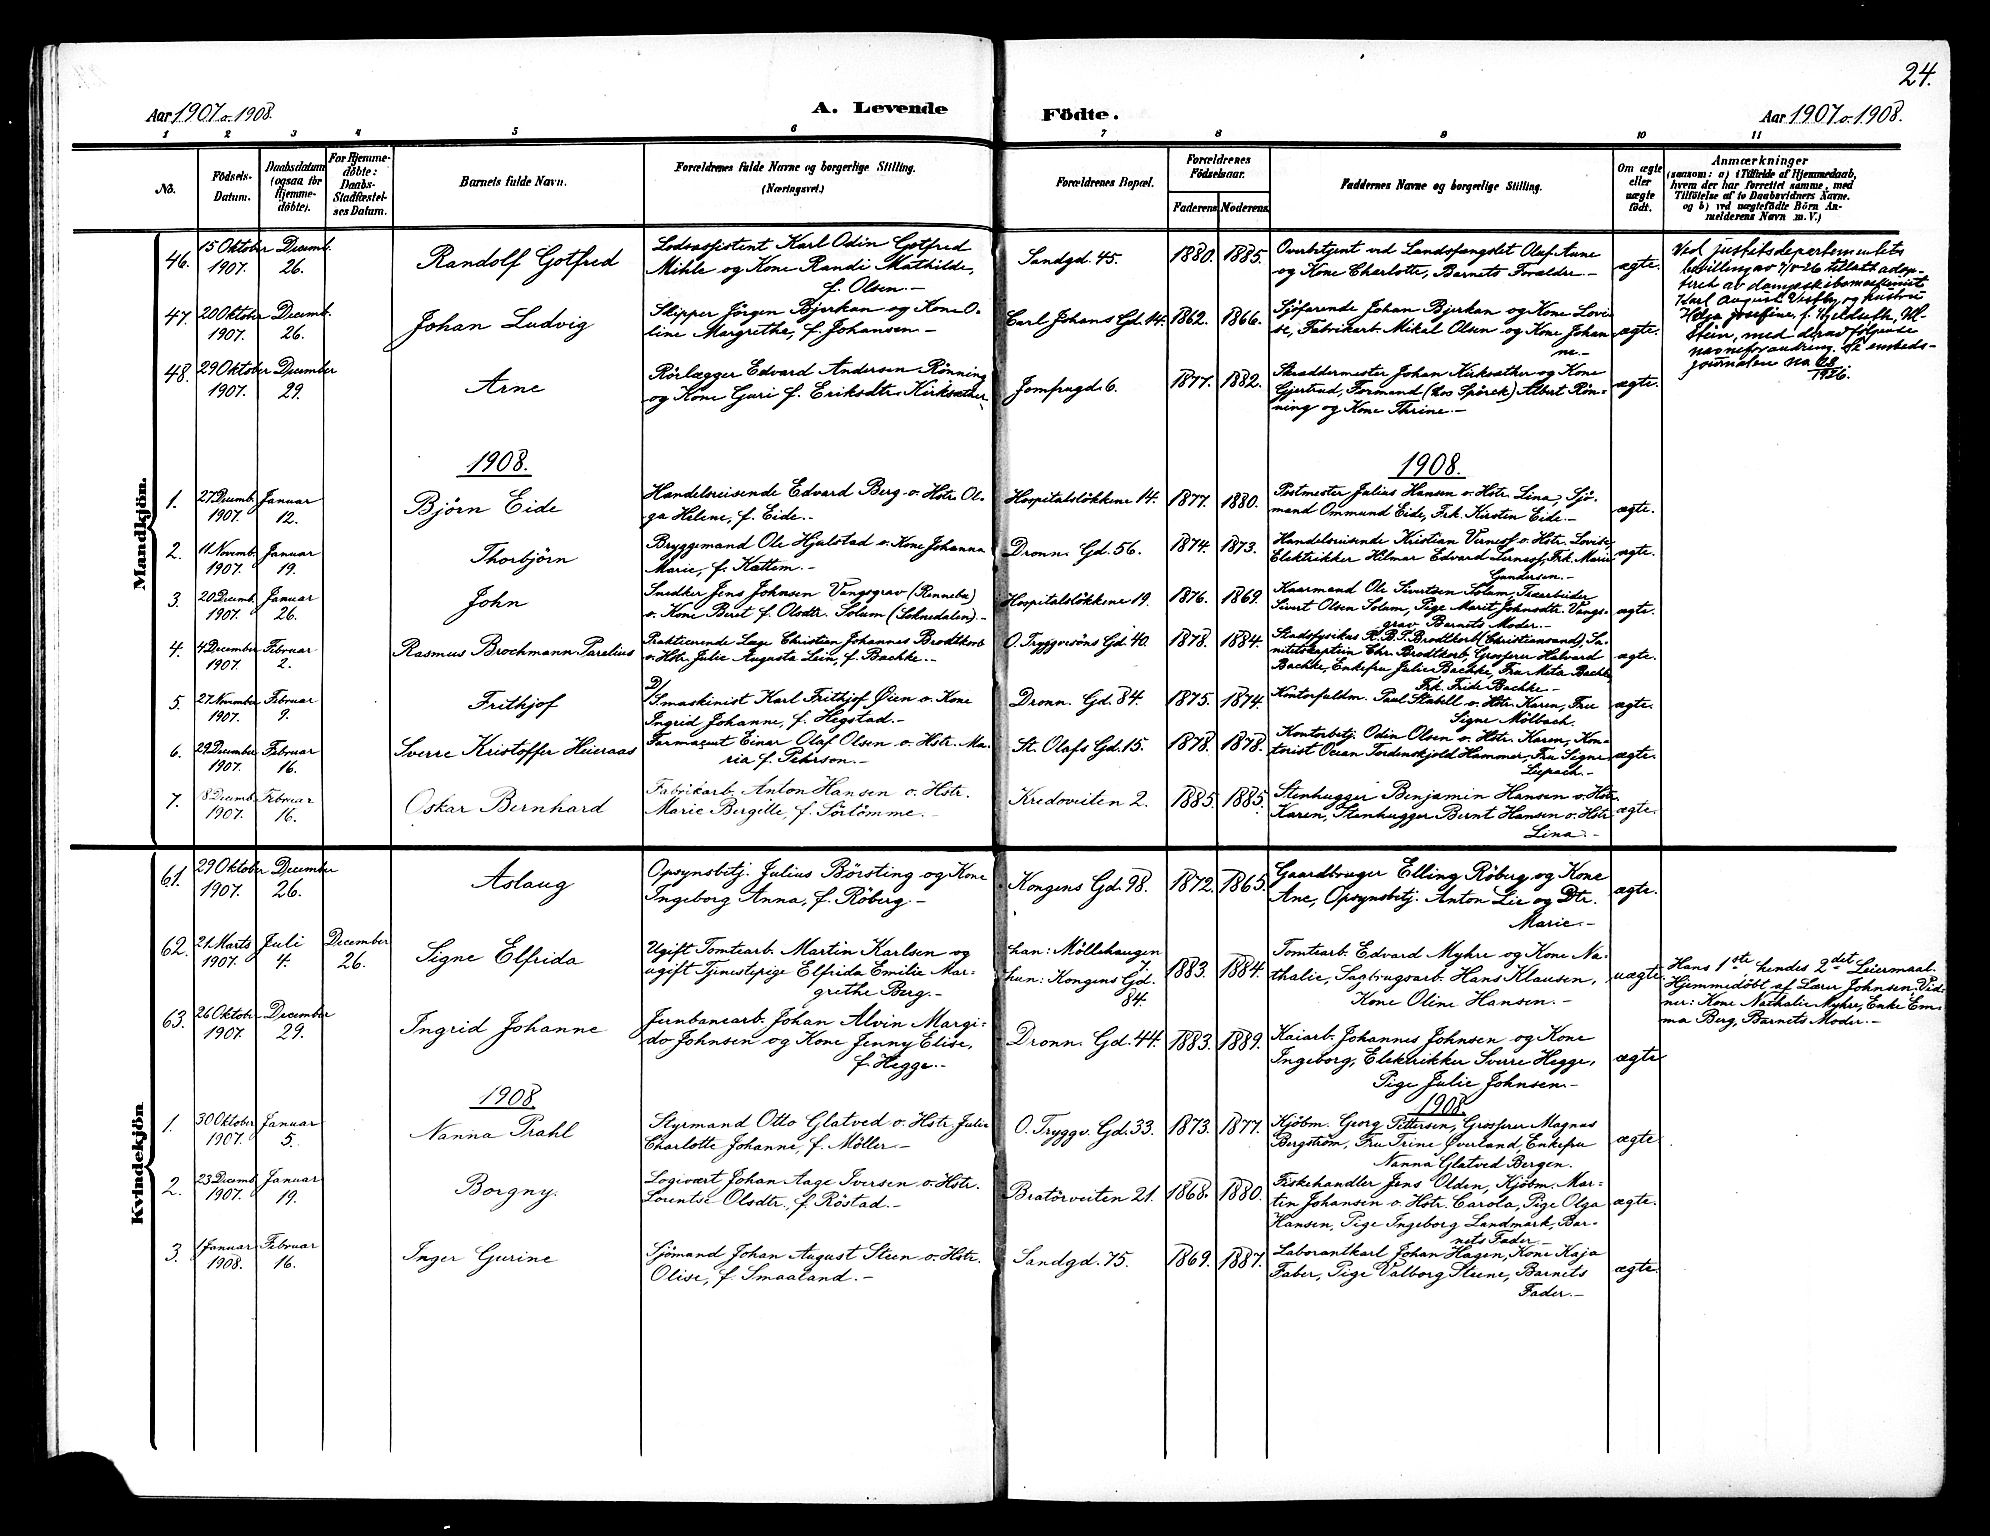 24.
Aar 1907 o. 1908.
A. Levende
Födte.
Aar 1907 o. 1908.
1 2 3 4 5 6 7 8 9 10 11
No.
Födsels-
Datum.
Daabsdatum
(ogsaa for
Hjemme-
döbte).
For Hjemme-
döbte:
Daabs-
Stadfæstel-
ses Datum.
Barnets fulde Navn.
Forældrenes fulde Navne og borgerlige Stilling.
(Næringsvei.)
Forældrenes Bopæl.
Forældrenes
Födselsaar.
Faderens Moderens
Faddernes Navne og borgerlige Stilling.
Om ægte
eller
uægte
födt.
Anmærkninger
(saasom: a) i Tilfælde af Hjemmedaab,
hvem der har forrettet samme, med
Tilföielse af to Daabsvidners Navne.
og b) ved uægtefödte Börn An-
melderens Navn m. V.)
Mandkjön.
46.
15 Oktober
1907.
Decemb.
26.
Randolf Gotfred
Lodsassistent Karl Odin Gotfred
Mihle og Kone Randi Mathilde,
f. Olsen.-
Sandgd. 45.
1880. 1885.
Overbetjent ved Landsfængslet Olaf Aune
og Kone Charlotte, Barnets Forældre.-
ægte.
Ved justitsdepartementets
bevilling av 7/5-26 tillatt adop-
tert av dampskibsmaskinist
Karl August Vestby og hustru
Helga Josefine, f.
Stein, med derav følgende
navneforandring. Se embeds-
journalen no
1926.
47.
20 Oktober
1907.
Decemb.
26.
Johan Ludvig
Skipper Jörgen Bjerkan og Kone O-
line Margrethe, f. Johansen.-
Carl Johans Gd. 14.
1862. 1866.
Sjöfarende Johan Bjerkan og Kone Lovi-
se, Fabrikarb. Mikal Olsen og Kone Johan
ne.-
ægte.
48.
29 Oktober
1907.
December
29.
Arne
Rörlægger Edvard Andersen Rönning
og Kone Guri f. Eriksdtr. Kirksæther
Jomfrugd. 6.
1877. 1882.
Skræddermester Johan Kirksæther og Kone
Gjertrud, Formand (hos Spörck) Albert Rön-
ning og Kone Thrine.-
ægte.
1908.
1908.
1.
27 Decemb.
1907.
Januar
12.
Bjørn Eide
Handelsreisende Edvard Berg o. Hstr. Ol-
ga Helene, f. Eide.-
Hospitalsløkkene 14.
1877. 1880.
Postmester Julius Hansen o. Hstr. Lina, Sjö-
mand Ommund Eide, Frk. Kirsten Eide.-
ægte.
2.
11 Novemb.
1907.
Januar
19.
Thorbjörn
Bryggemand Ole Hjulstad o. Kone Johanna
Marie, f. Kattem.-
Dronn. Gd. 56.
1874. 1873.
Handelsreisende Kristian o. Hstr. Lovise,
Elektrikker Hilmar Edvard Frk. Marie
Gundersen.-
ægte.
3.
20 Decemb.
1907.
Januar
26.
John
Snedker Jens Johnsen Vangsgrav (Rennebu)
o. Kone Beret f. Olsdtr. Solum (Soknedalen).-
Hospitalsløkkene 19.
1876. 1869.
Kaarmand Ole Sivertsen Solum, Træarbeider
Sivert Olsen Solum, Pige Marit Johnsdtr. Vangs-
grav Barnets Moder.-
ægte.
4.
4 December
1907.
Februar
2.
Rasmus Brochmann Parelius
Praktiserende Læge Christian Johannes Brodtkorb
o. Hstr. Julie Augusta Lein, f. Bachke.-
O. Tryggvesöns Gd. 40.
1878. 1884.
Stadsfysikus R. B. P. Brodtkorb (Christianssand), Sa-
nitetskaptein Chr. Brodtkorb, Grosserer Halvard
Bachke, Enkefru Julie Bachke, Fru Meta Bachke
Frk. Frida Bachke.-
ægte.
5.
27 November
1907.
Februar
9.
Frithjof
D/
S. maskinist Karl Frithjof Øien o. Kone
Ingrid Johanne, f. Hegstad.-
Dronn. Gd. 84.
1875. 1874.
Kontorfuldm. Paul Stabell o. Hstr. Karen, Fru
Signe Mölbach.
ægte.
6.
29 December
1907.
Februar
16.
Sverre Kristoffer Heieraas
Farmaceut Einar Olaf Olsen o. Hstr. Ma-
ria f. Pehrson.-
St. Olafs Gd. 15.
1878. 1878.
Kontorbetj. Odin Olsen o. Hstr. Karen, Kon-
torist Ocean Tordenskjold Hammer, Fru Signe
Liepach.-
ægte.
7.
8 Decemb.
1907.
Februar
16.
Oskar Bernhard
Fabrikarb. Anton Hansen o. Hstr.
Marie Bergitte, f. Sörlömme.-
Kredoveiten 2.
1885. 1885.
Stenhugger Benjamin Hansen o. Hstr.
Karen, Stenhugger Bernt Hansen o. Hstr.
Lina.-
ægte.
Kvindekjön
61.
29 Oktober
1907.
December
26.
Aslaug
Opsynsbetj. Julius Börsting og Kone
Ingeborg Anna, f. Röberg.-
Kongens Gd. 98.
1872. 1865.
Gaardbruger Elling Röberg og Kone
Ane, Opsynsbetj. Anton Lie og Dtr.
Marie.-
ægte.
62.
21 Marts
1907.
Juli
4.
December
26.
Signe Elfrida
Ugift Tomtearb. Martin Karlsen og
ugift Tjenestepige Elfrida Emilie Mar-
grethe Berg.-
han: Möllehaugen
7.
hun: Kongens Gd.
84.
1883. 1884.
Tomtearb. Edvard Myhre og Kone Na-
thalie, Sagbrugsarb. Hans Klausen,
Kone Oline Hansen.-
uægte.
Hans 1ste, hendes 2det Leiermaal.
Hjemmedöbt af Lærer Johnsen. Vid-
ner: Kone Nathalie Myhre, Enke Em-
ma Berg, Barnets Moder.-
63.
26 Oktober
1907.
December
29.
Ingrid Johanne
Jernbanearb. Johan Alvin Margi-
do Johnsen og Kone Jenny Elise,
f. Hegge.-
Dronn. Gd. 44.
1883. 1889.
Kaiarb. Johannes Johnsen og Kone
Ingeborg, Elektrikker Sverre Hegge,
Pige Julie Johnsen.-
ægte
1908
1908.
1.
30 Oktober
1907.
Januar
5.
Nanna Prahl
Styrmand Otto Glatved o. Hstr. Julie
Charlotte Johanne, f. Möller.-
O. Tryggv. Gd. 33.
1873. 1877.
Kjöbm. Georg Pettersen, Grosserer Magnus
Bergström, Fru Trine Øverland, Enkefru
Nanna Glatved Bergen.
ægte
2.
23 Decemb.
1907.
Januar
19.
Borgny.
Logivært Johan Aage Iversen o. Hstr.
Lorentse Olsdtr., f. Röstad.-
Bratörveiten 21.
1868. 1880.
Fiskehandler Jens Olden, Kjöbm. Mar-
tin Johansen o. Hstr. Carola, Pige Olga
Hansen, Pige Ingeborg Landmark, Bar-
nets Fader.-
ægte.
3.
1 Januar
1908.
Februar
16.
Inger Gurine
Sjömand Johan August Steen o. Hstr.
Olise, f. Smaaland.-
Sandgd. 75.
1869. 1887.
Laborantkarl Johan Hagen, Kone Kaja
Faber, Pige Valborg Steene, Barnets
Fader.-
ægte.